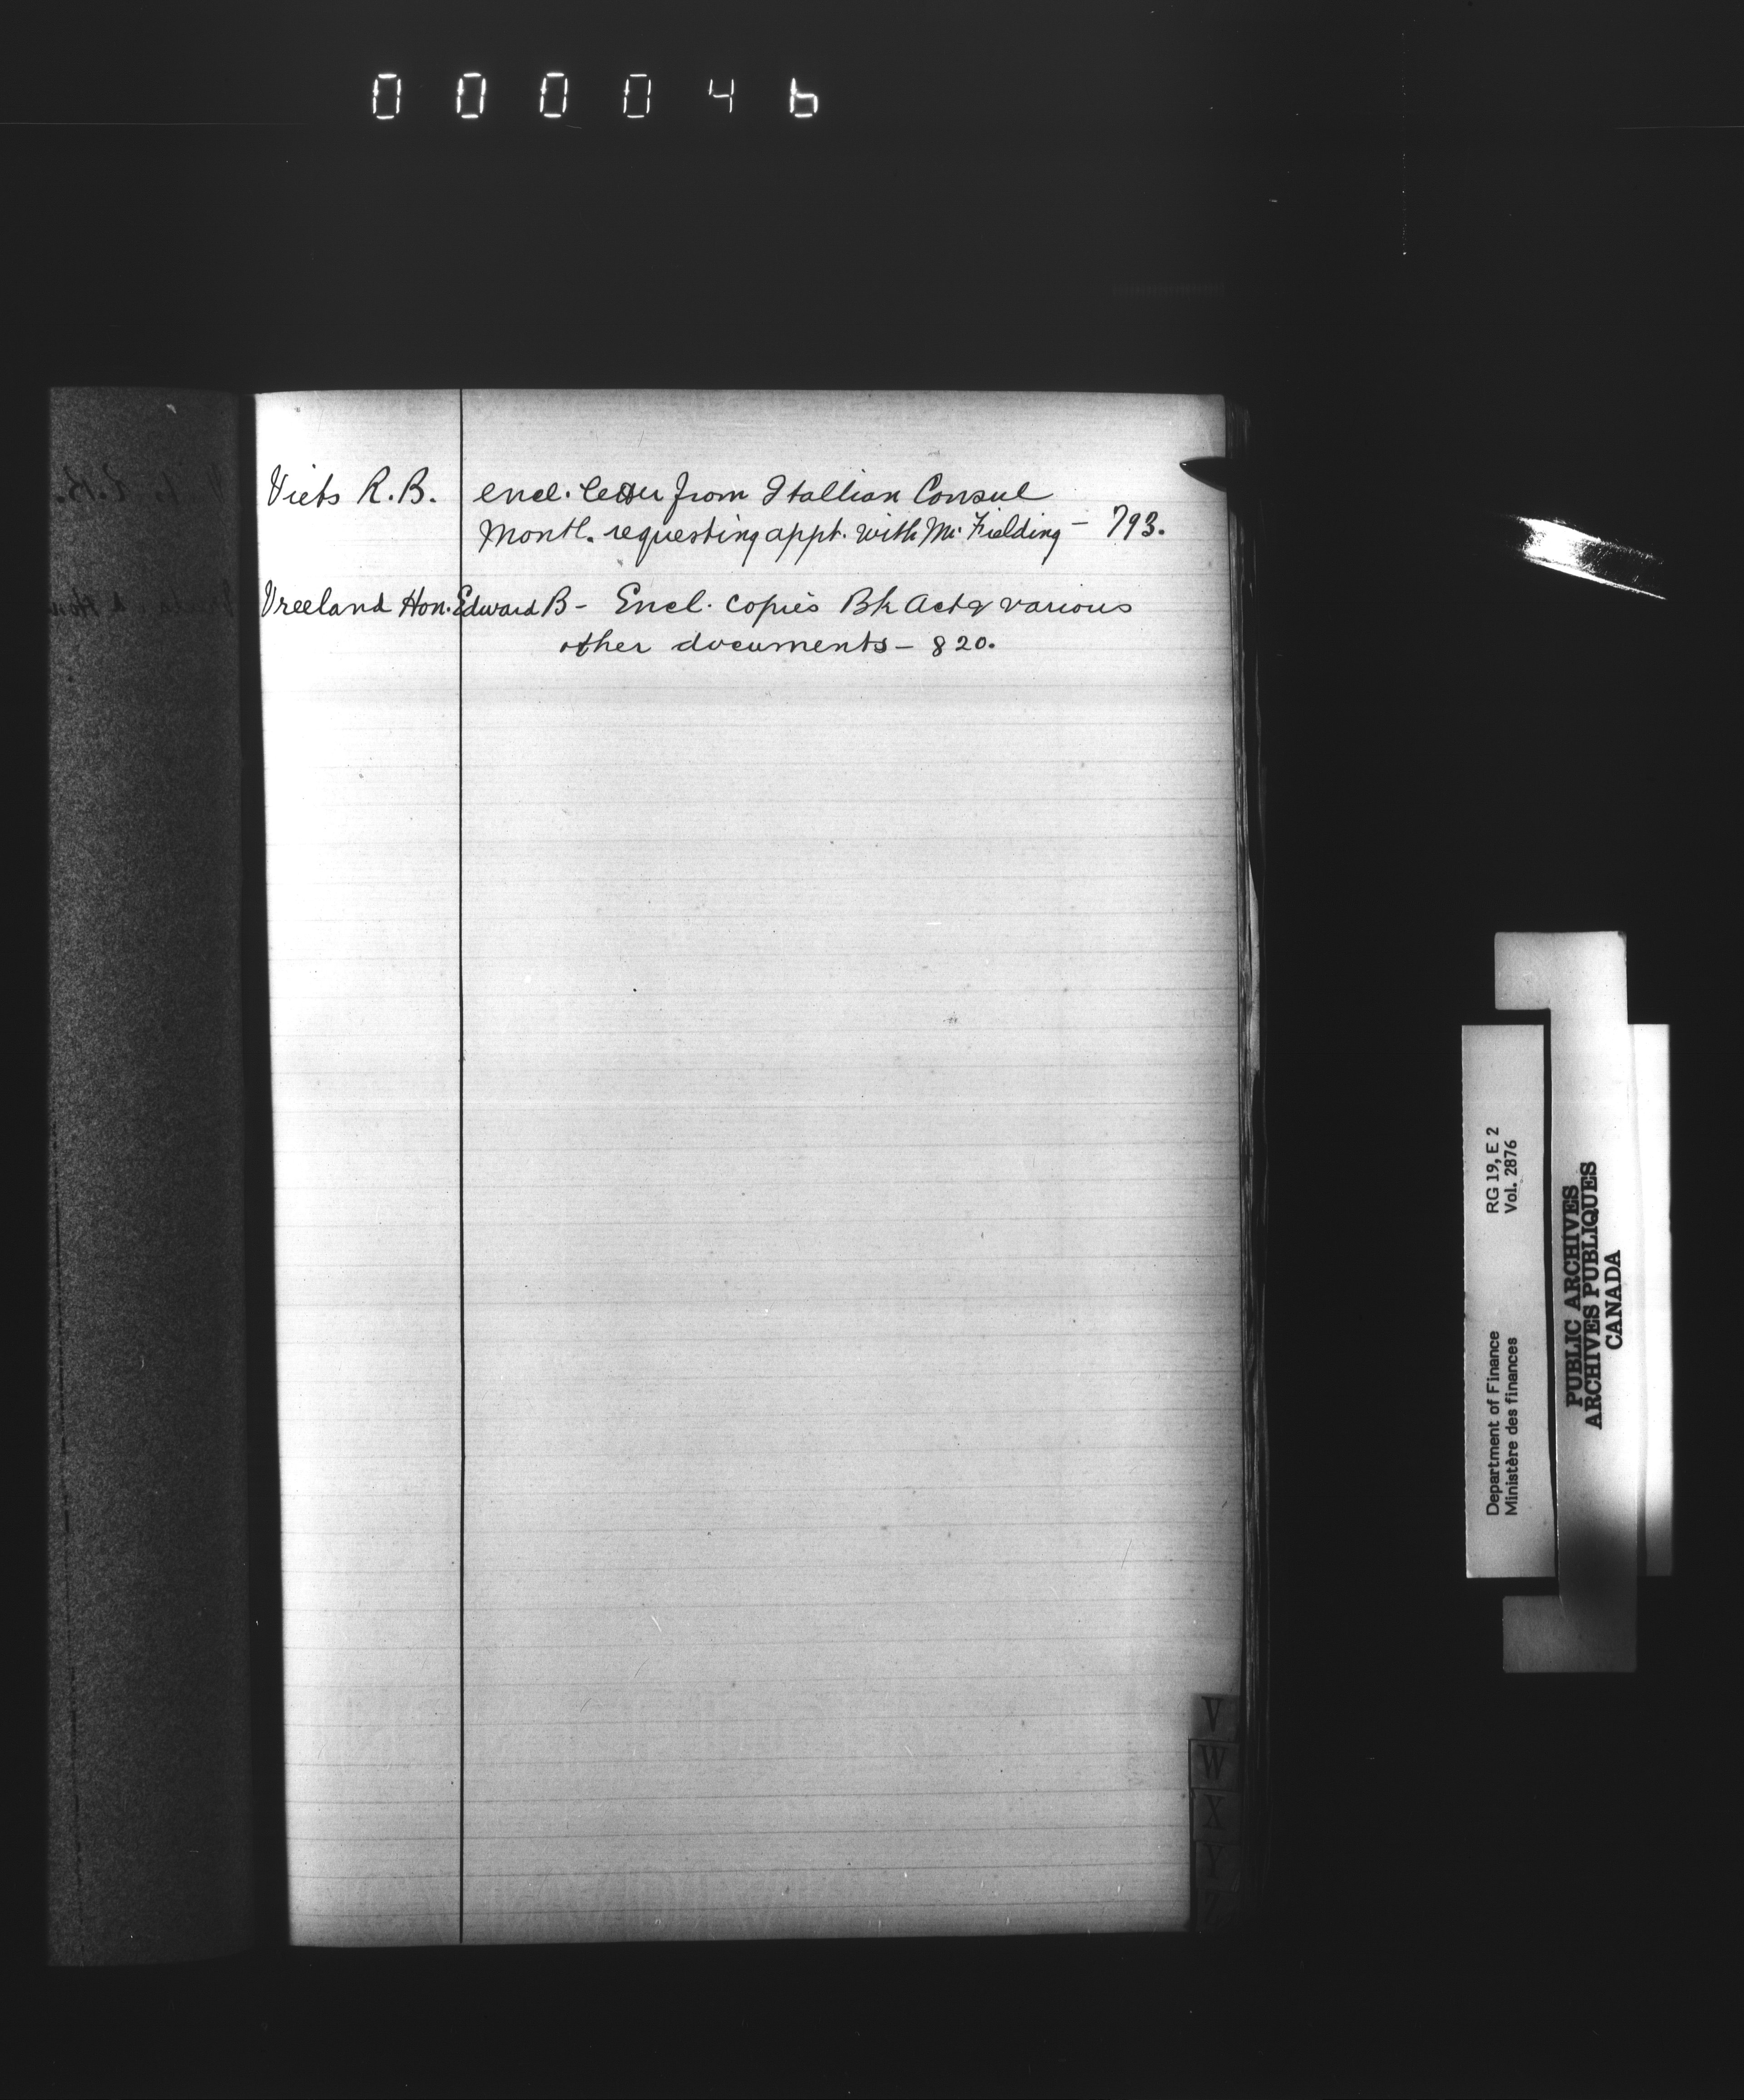 000046
Viets R.B. encl. letter from Itallian Consul
Montl. requesting appt. with Mr. Fielding – 793.
Vreeland Hon. Edward B – Encl. copies Bk Act & various
other documents – 820.
V
W
X
Y
Z
Department of Finance RG 19, E 2
Ministère des finances Vol. 2876
PUBLIC ARCHIVES
ARCHIVES PUBLIQUES
CANADA